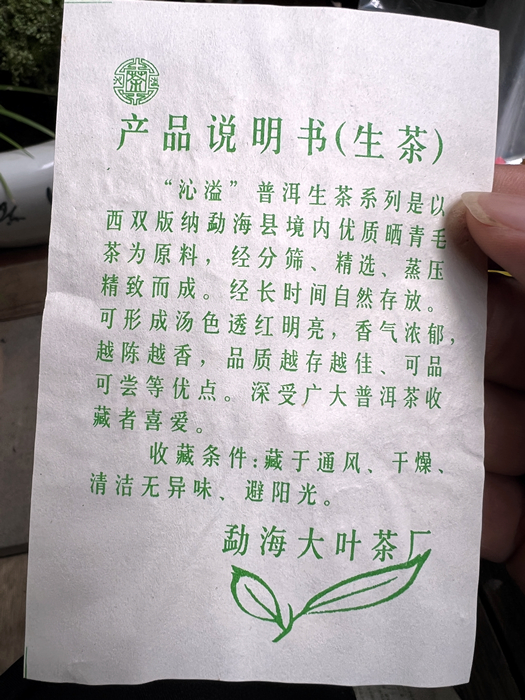 产品说明书(生茶)
“沁溢”普洱生茶系列是以
西双版纳勐海县境内优质晒青毛
茶为原料，经分筛、精选、蒸压
精致而成。经长时间自然存放。
可形成汤色透红明亮，香气浓郁，
越陈越香，品质越存越佳、可品
可尝等优点。深受广大普洱茶收
藏者喜爱。
收藏条件:藏于通风、干燥、
清洁无异味、避阳光。
勐海大叶茶厂